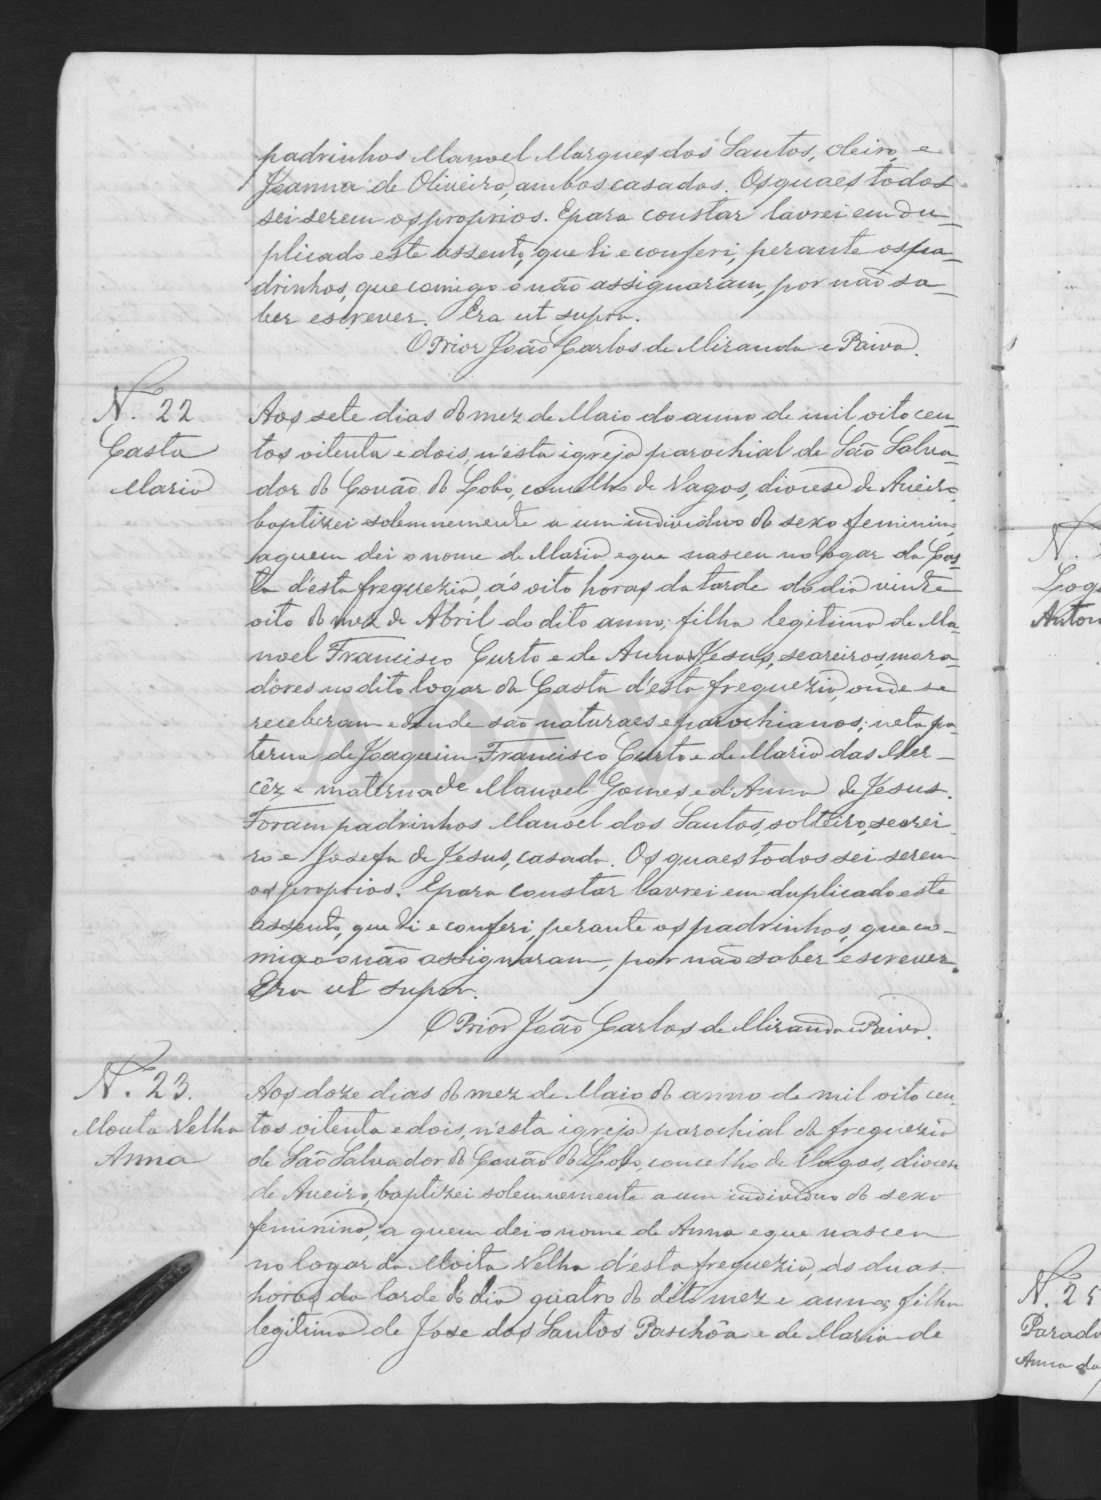 padrinhos Manoel Marques dos Santos, oleiro, e
Joanna de Oliveira, ambos casados. Os quaes todos
sei serem os proprios. E para constar lavrei em du-
plicado este assento, que li e conferi, perante os pa-
drinhos, que comigo o não assignaram, por não sa-
ber escrever. Era ut supra.
O Prior João Carlos de Miranda e Paiva.
N. 22
Casta
Maria
Aos sete dias do mez de Maio do anno de mil oito cen-
tos oitenta e dois, n'esta igreja parochial de São Salva-
dor do Covão do Lobo, concelho de Vagos, diocese de Aveiro,
baptizei solemnemente a um individuo do sexo feminino,
a quem dei o nome de Maria e que nasceu no logar da Cas-
ta d'esta freguezia, ás oito horas da tarde do dia vinte
oito do mez de Abril do dito anno; filha legitima de Ma-
noel Francisco Curto e de Anna Jesus, seareiros, mora-
dores no dito logar da Casta d'esta freguezia, onde se
receberam e donde são naturaes e parochianos; neta pa-
terna de Joaquim Francisco Curto e de Maria das Mer-
cêz e materna de Manoel Gomes e d'Anna de Jesus.
Foram padrinhos Manoel dos Santos, solteiro, searei-
ro e Josefa de Jesus, casada. Os quaes todos sei serem
os proprios. E para constar lavrei em duplicado este
assento, que li e conferi, perante os padrinhos, que co-
migo o não assignaram, por não saber escrever.
Era ut supra.
O Prior João Carlos de Miranda e Paiva.
N. 23.
Mouta Velha
Anna
Aos doze dias do mez de Maio do anno de mil oito cen-
tos oitenta e dois, n'esta igreja parochial da freguezia
de São Salvador do Covão do Lobo, concelho de Vagos, diocese
de Aveiro, baptizei solemnemente a um individuo do sexo
feminino, a quem dei o nome de Anna e que nasceu
no logar da Moita Velha d'esta freguezia, ás duas
horas da tarde do dia quatro do dito mez e anno; filha
legitima de Jose dos Santos Paschôa e de Maria de
ADAVR
N.
Anton
N. 25
Parada
Anna da